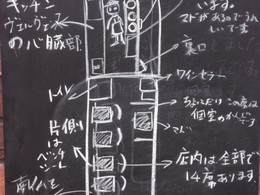 キッチン
ヴェルヴェーヌ
の心臓部
います。
マドがあるのでうれ
しいです
裏口
ワインセラー
トイレ
ちょっとだけ この席は
個室のかんじです
マド
片側
は
ベンチ
シート
店内は全部で
14席あります。